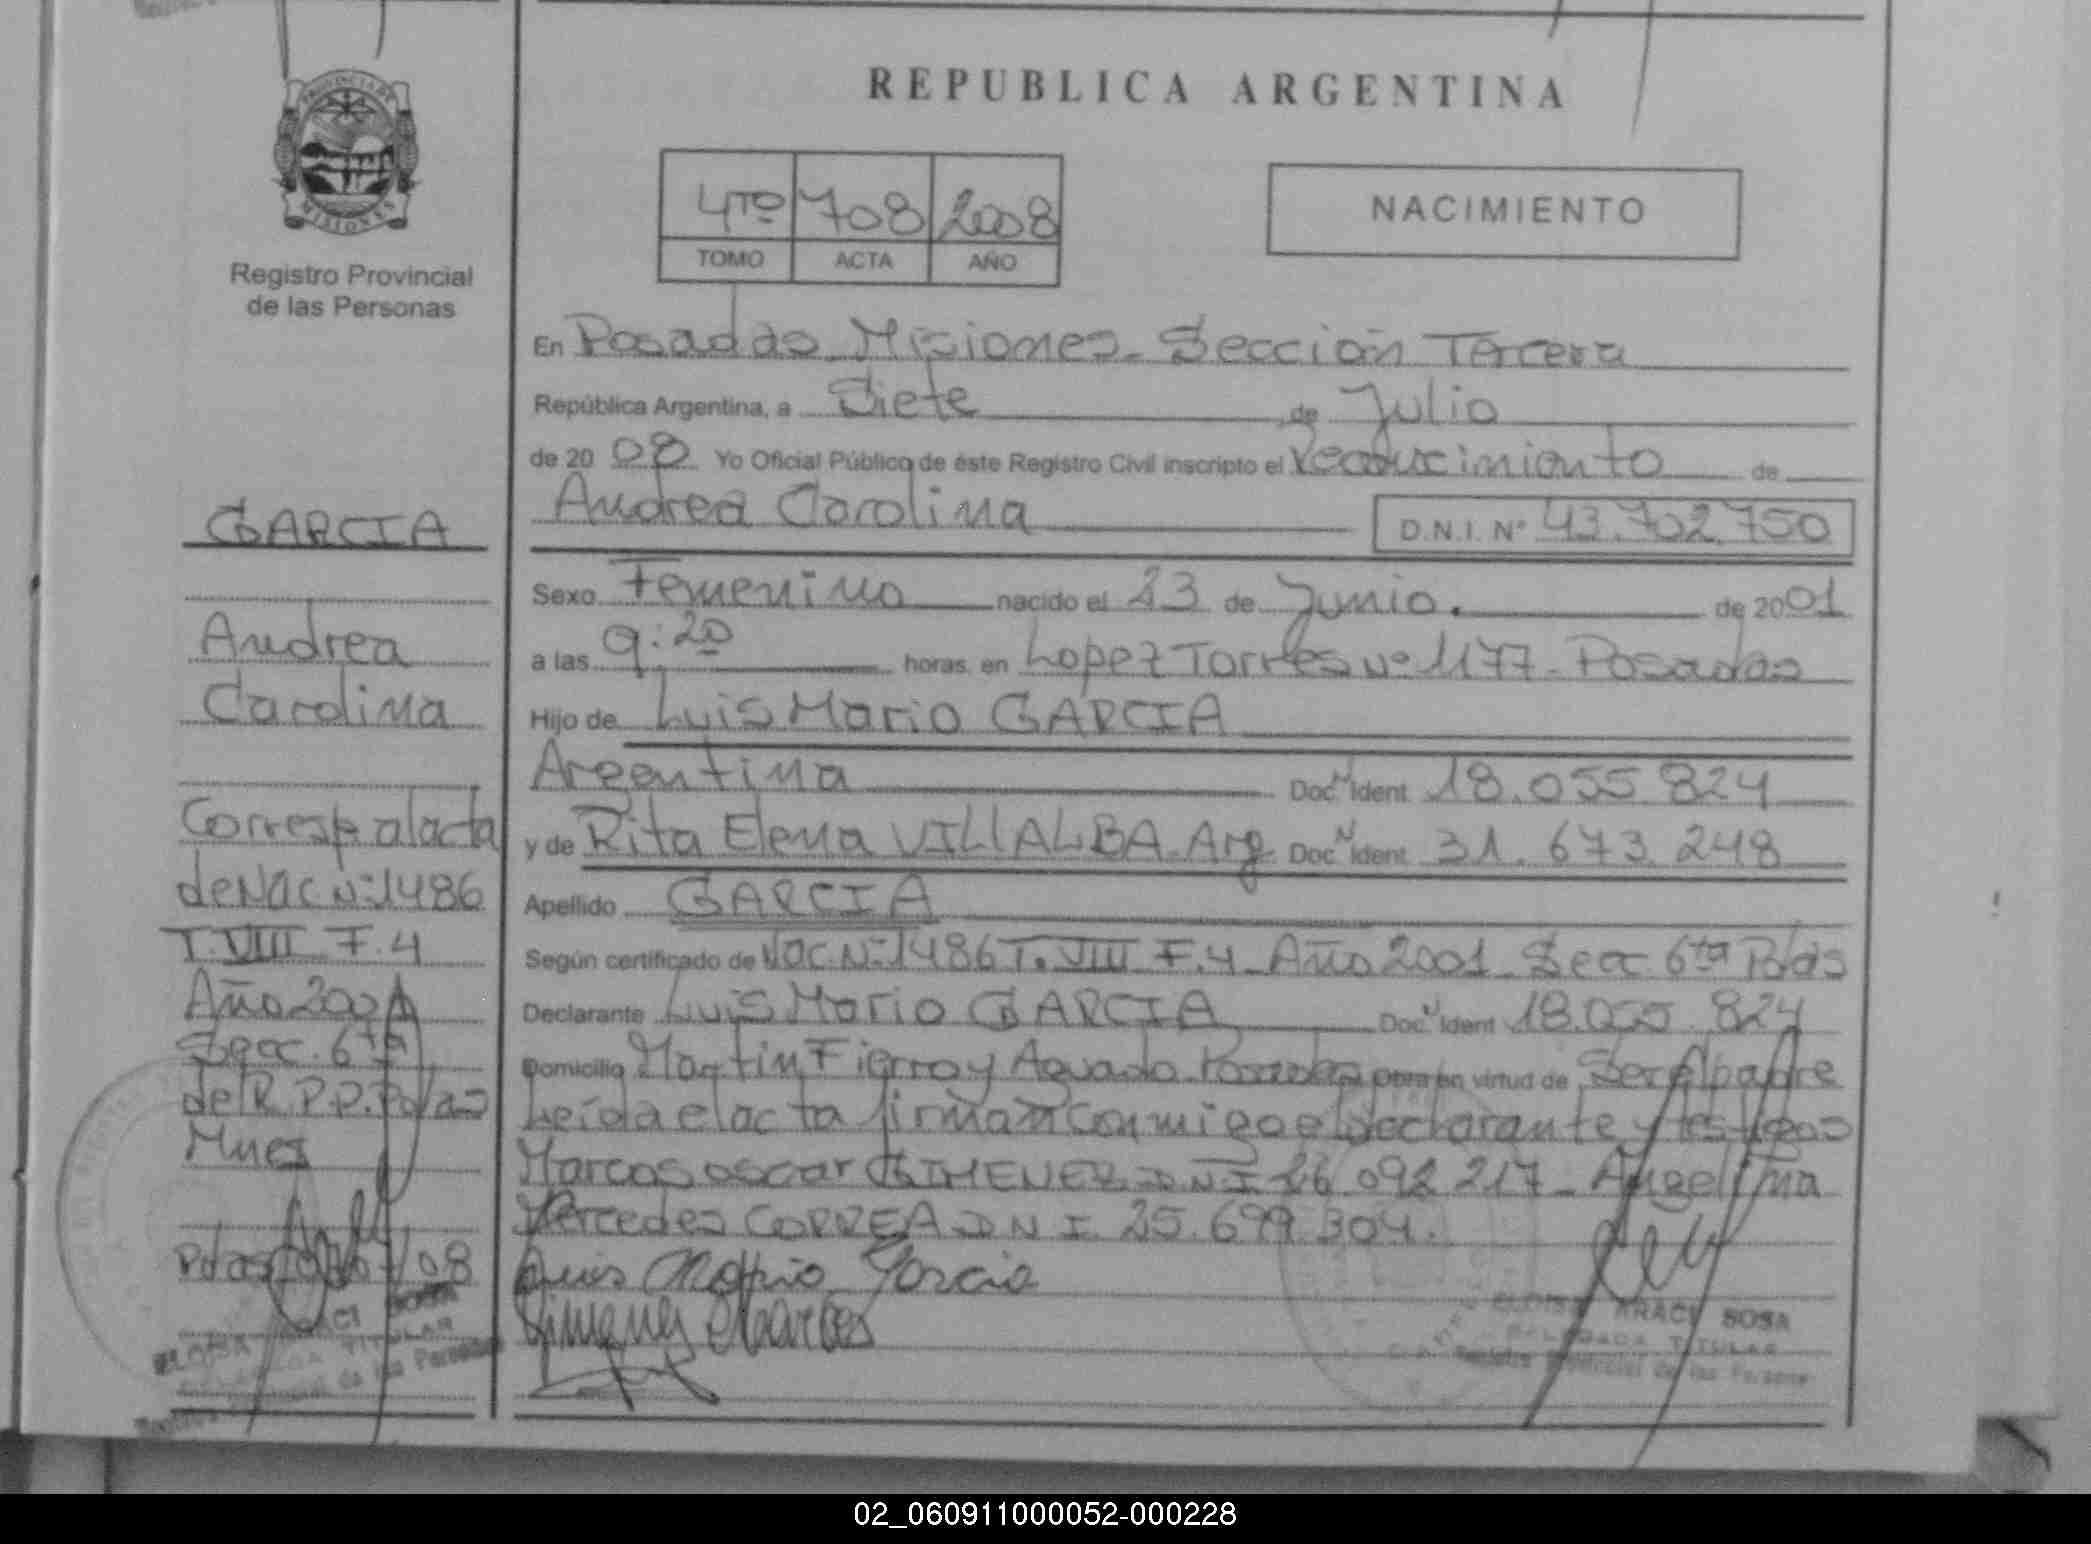 PROVINCIA DE
MISIONES
Registro Provincial
de las Personas
GARCIA
Andrea
Carolina
Corresp. al acta
de Nac Nº 1486
T. VIII F. 4
Año 2001
Secc. 6ta
de R.P.P. Pdas
Mnes
REPUBLICA ARGENTINA
4TO 708 2008
TOMO ACTA AÑO
NACIMIENTO
En Posadas Misiones - Sección Tercera
República Argentina, a Siete de Julio
de 2008 Yo Oficial Público de éste Registro Civil inscripto el Reconocimiento de
Andrea Carolina D.N.I. Nº 43.702.750
Sexo Femenino nacido el 23 de Junio. de 2001
a las 9:20 horas, en Lopez Torres Nº 1177 - Posadas
Hijo de Luis Mario GARCIA
Argentina Doc. Ident 18.055.824
y de Rita Elena VILLALBA - Arg Doc. Ident 31.673.248
Apellido GARCIA
Según certificado de Nac. Nº 1486 T. VIII F. 4 - Año 2001 - Secc. 6ta Pdas
Declarante Luis Mario GARCIA Doc. Ident 18.055.824
Domicilio Martin Fierro y Aguado Posadas obra en virtud de Ser el padre
Leída el acta firman conmigo el declarante y testigos
Marcos oscar GIMENEZ D N I 26 092 217 - Angelina
Mercedes CORREA D N I. 25.699.304.
Luis Mario Garcia
Gimenez Marcos
ELOISA ARACI SOSA
DELEGADA TITULAR
Registro Provincial de las Personas
ELOISA ARACI SOSA
DELEGADA TITULAR
Registro Provincial de las Personas
02_060911000052-000228